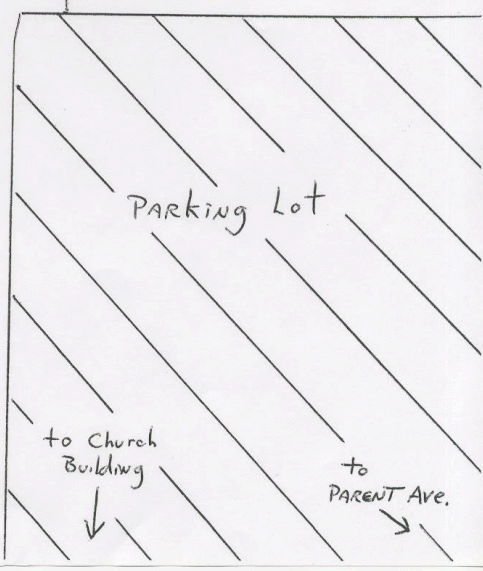 PARKING Lot
to Church
Building
to
PARENT Ave.